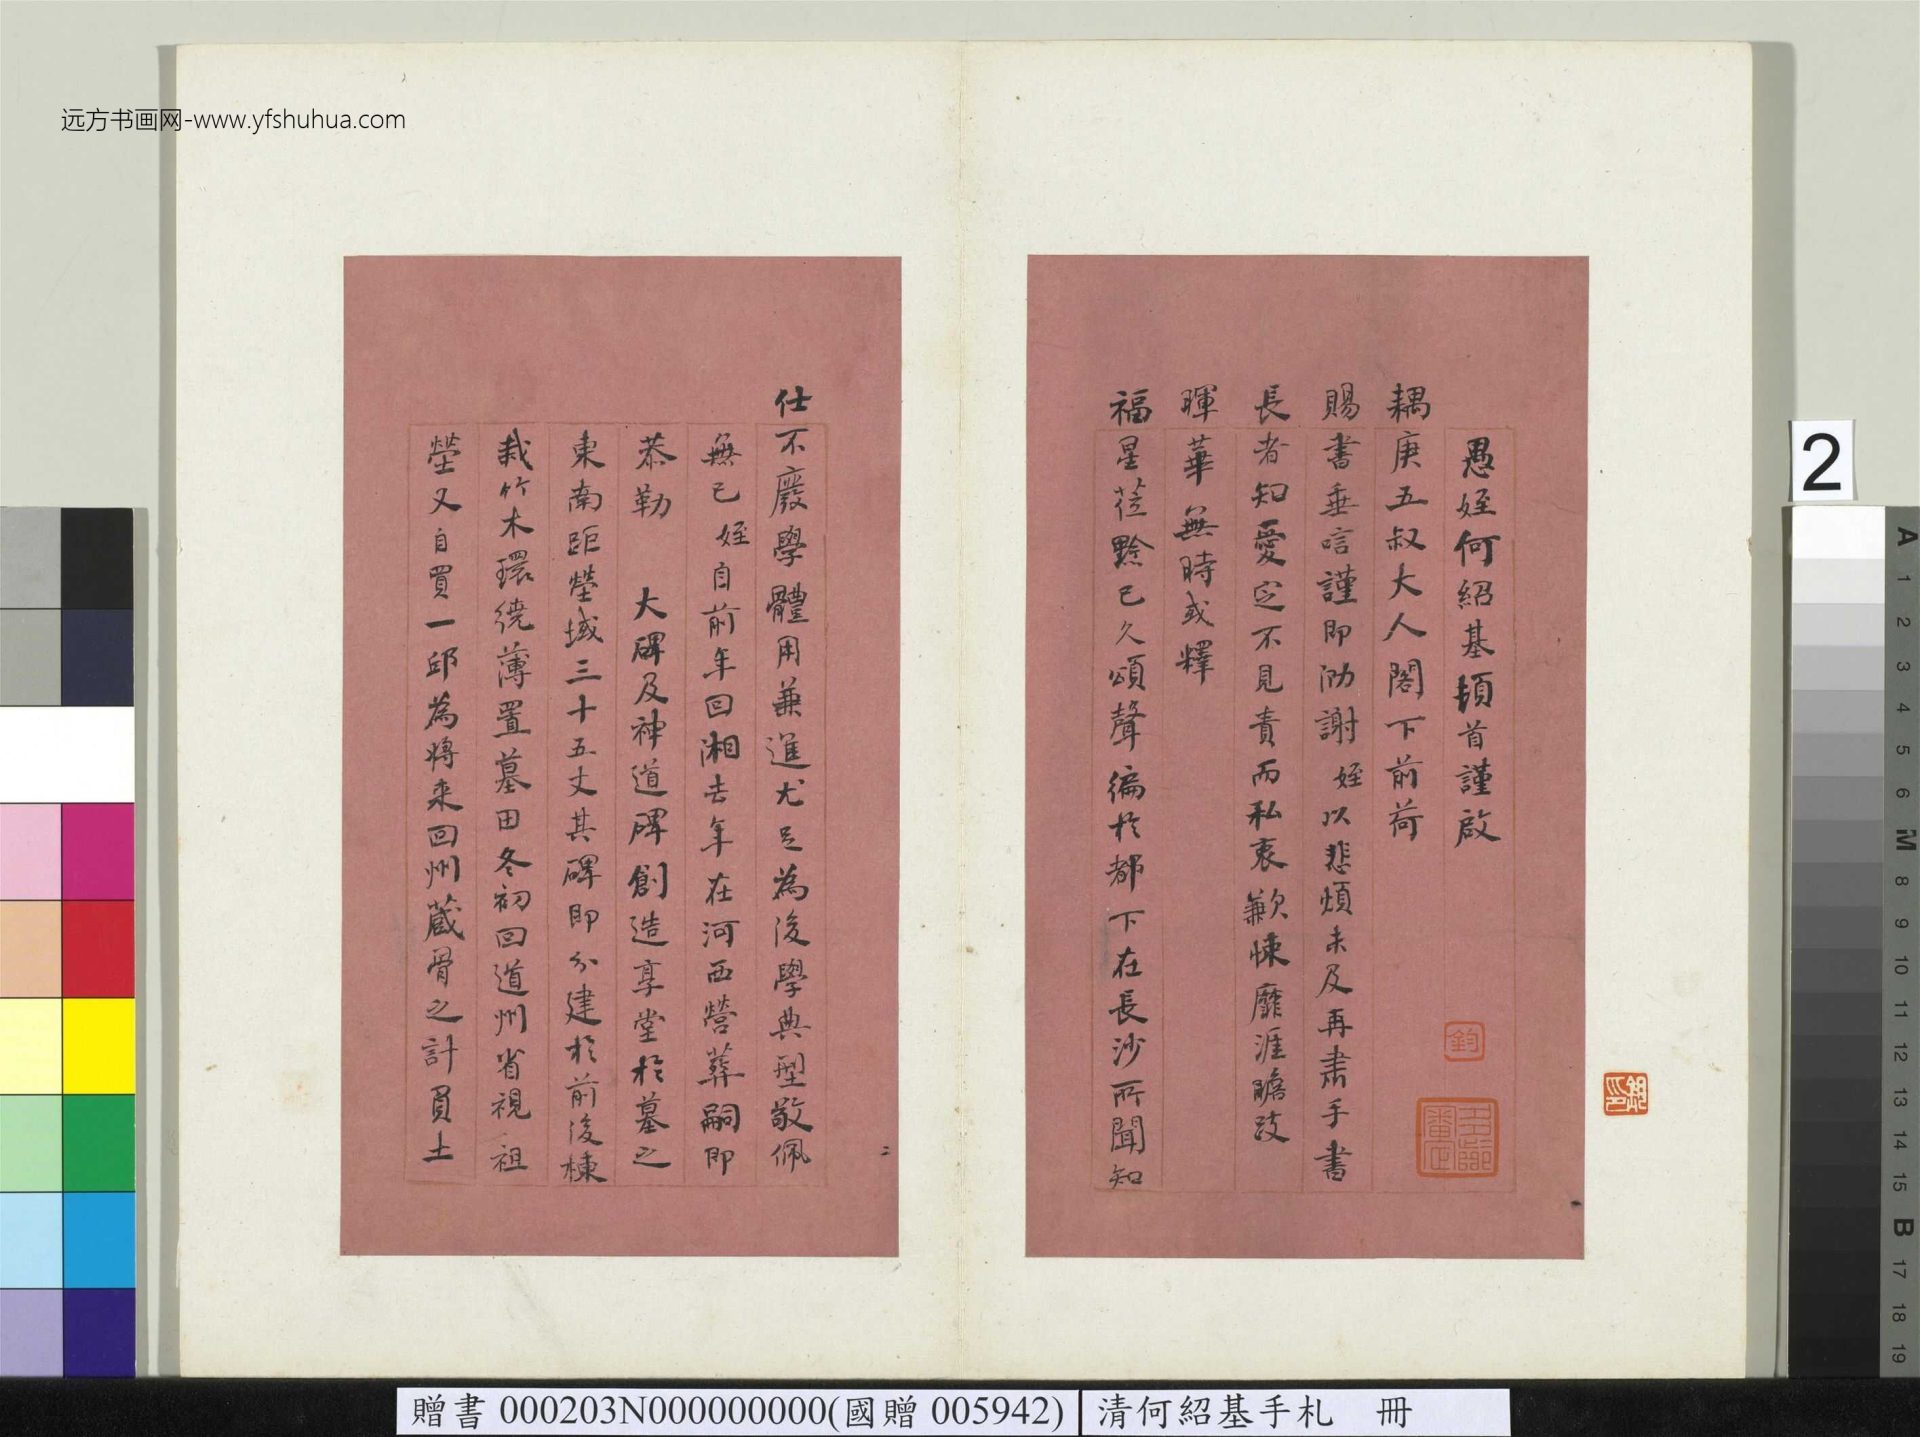 远方书画网-www.yfshuhua.com
愚姪何紹基頓首謹啟
耦庚五叔大人閣下前荷
賜書垂唁謹即泐謝姪以悲煩未及再肅手書
長者知愛定不見責而私衷歉悚靡涯瞻跂
暉華無時或釋
福星莅黔已久頌聲徧於都下在長沙所聞知
仕不廢學體用兼進尤足為後學典型敬佩
無已姪自前年回湘去年在河西營葬嗣即
恭勒 大碑及神道碑創造享堂於墓之
東南距塋域三十五丈其碑即分建於前後棟
栽竹木環繞薄置墓田冬初回道州省視祖
塋又自買一邱為將來回州藏骨之計負土
二
2
A 1 2 3 4 5 6 M 8 9 10 11 12 13 14 15 B 17 18 19
贈書 000203N000000000(國贈 005942) 清何紹基手札 冊